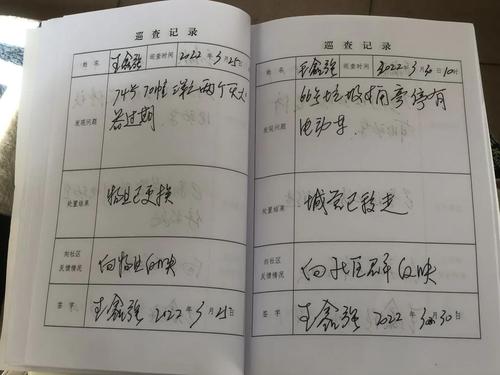 巡查记录
姓名 王鑫强 巡查时间 2022年3月25日
发现问题
74号70幢 两个灭火
器过期
处置结果
物业已更换
向社区
反馈情况
向物业反映
签字 王鑫强 2022年3月25日
巡查记录
姓名 王鑫强 巡查时间 2022年3月30日10时
发现问题
66号垃圾 停有
电动车
处置结果
城管已移走
向社区
反馈情况
向社区群反映
签字 王鑫强 2022年3月30日